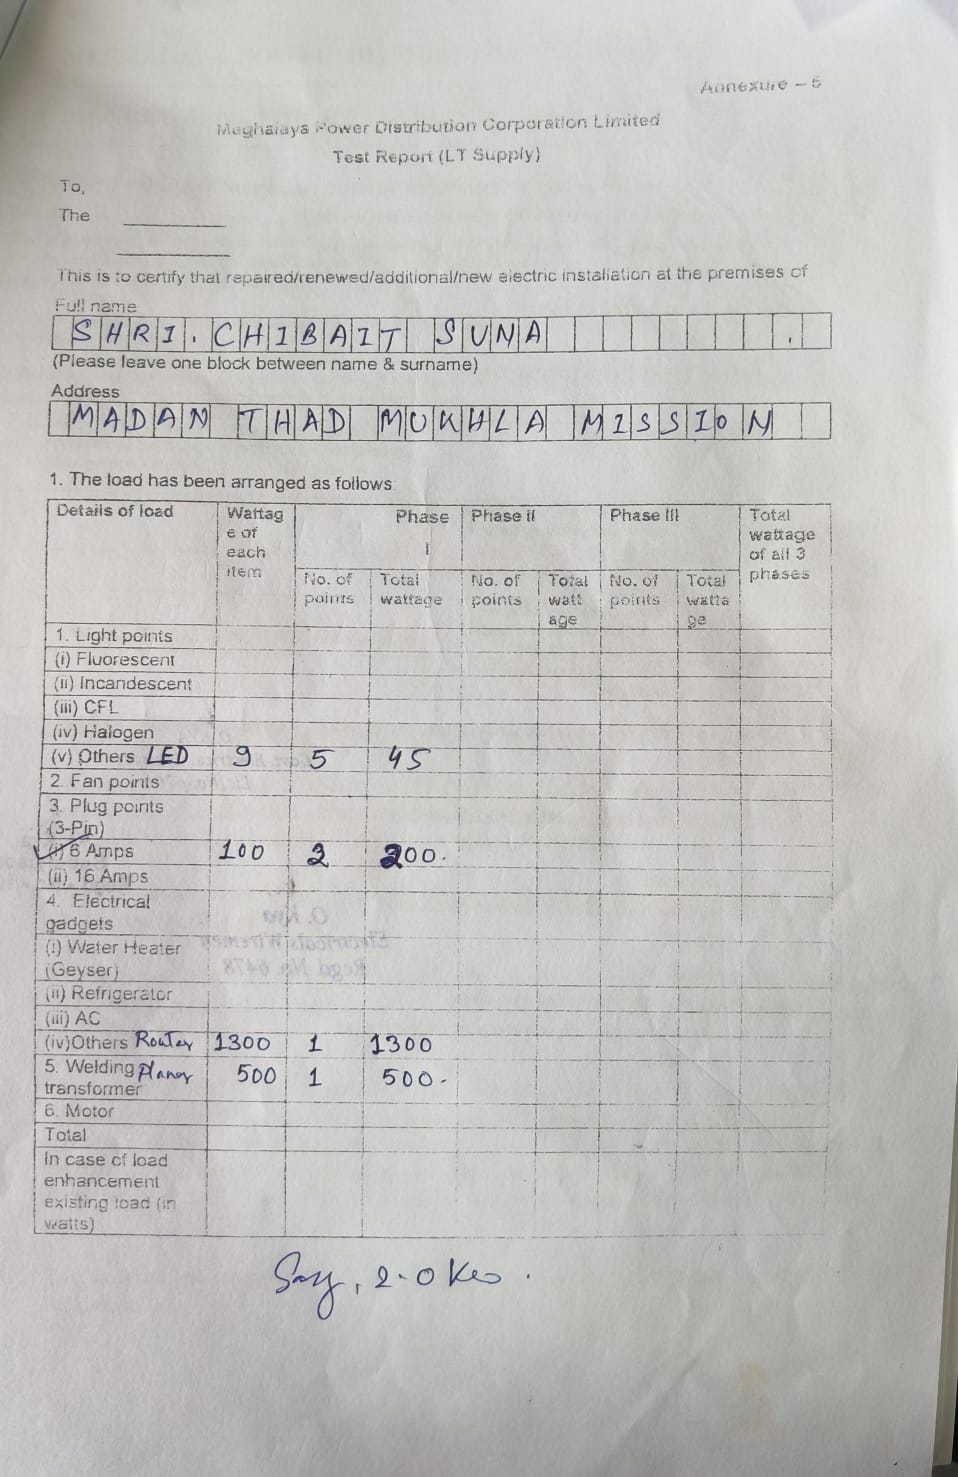 Annexure – 5
Meghalaya Power Distribution Corporation Limited
Test Report (LT Supply)
To,
The
This is to certify that repaired/renewed/additional/new electric installation at the premises of
Full name
SHRI. CHIBAIT SUNA .
(Please leave one block between name & surname)
Address
MADAN THAD MUKHLA MISSION
1. The load has been arranged as follows:
Details of load Wattag e of each item Phase I Phase II Phase III Total wattage of all 3 phases
No. of points Total wattage No. of points Total watt age No. of points Total watta ge
1. Light points
(i) Fluorescent
(ii) Incandescent
(iii) CFL
(iv) Halogen
(v) Others LED 9 5 45
2. Fan points
3. Plug points
(3-Pin)
(i) 6 Amps 100 2 200.
(ii) 16 Amps
4. Electrical
gadgets
(i) Water Heater
(Geyser)
(ii) Refrigerator
(iii) AC
(iv)Others Router 1300 1 1300
5. Welding Planer 500 1 500.
transformer
6. Motor
Total
In case of load
enhancement
existing load (in
watts)
Say, 2.0 Kw.